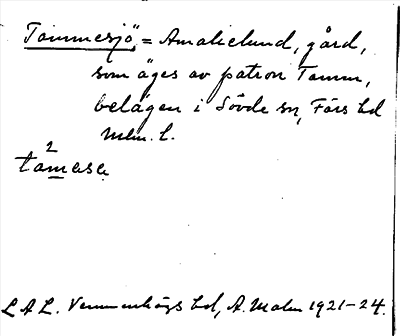 Tammesjö, = Amalielund, gård,
som äges av patron Tamm,
belägen i Sövde sn, Färs hd
Mlm. l.
2
tamese
L A L. Vemmenhögs hd, A. Malm 1921-24.